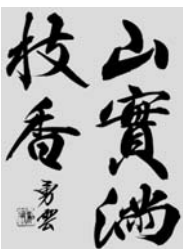 山實滿
枝香
勇雲